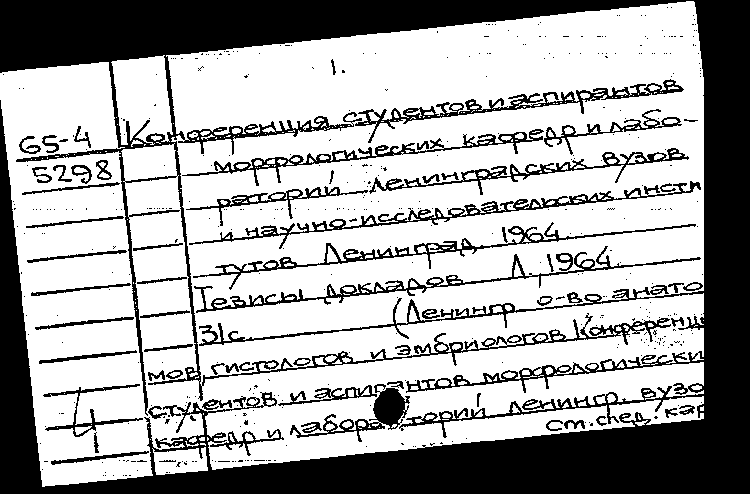 1.
65-4
5298
Конференция студентов и аспирантов
морфологических кафедр и лабо-
раторий Ленинградских вузов
и научно-исследовательских инсти
тутов Ленинград. 1964
Тезисы докладов Л., 1964.
31с. (Ленингр. о-во анато
мов, гистологов и эмбриологов Конференц
студентов и аспирантов морфологически
кафедр и лабораторий ленингр. вузо
см. след. кар
4